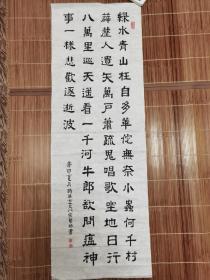 綠水青山枉自多華佗無奈小蟲何千村
薜荔人遺矢萬戶蕭疏鬼唱歌坐地日行
八萬里巡天遥看一千河牛郎欲問瘟神
事一樣悲歡逐逝波
癸卯夏月